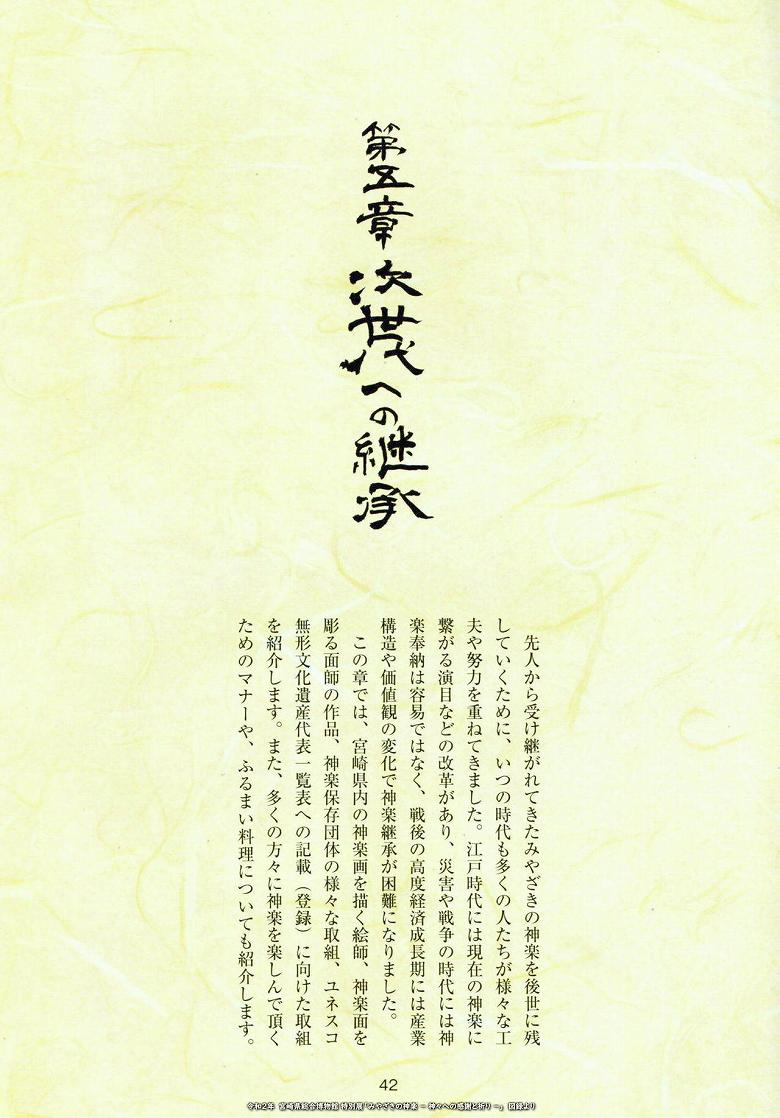 第五章 次世代への継承
先人から受け継がれてきたみやざきの神楽を後世に残
していくために、いつの時代も多くの人たちが様々な工
夫や努力を重ねてきました。江戸時代には現在の神楽に
繋がる演目などの改革があり、災害や戦争の時代には神
楽奉納は容易ではなく、戦後の高度経済成長期には産業
構造や価値観の変化で神楽継承が困難になりました。
この章では、宮崎県内の神楽画を描く絵師、神楽面を
彫る面師の作品、神楽保存団体の様々な取組、ユネスコ
無形文化遺産代表一覧表への記載（登録）に向けた取組
を紹介します。また、多くの方々に神楽を楽しんで頂く
ためのマナーや、ふるまい料理についても紹介します。
42
令和2年 宮崎県総合博物館 特別展「みやざきの神楽 －神々への感謝と祈り－」 図録より